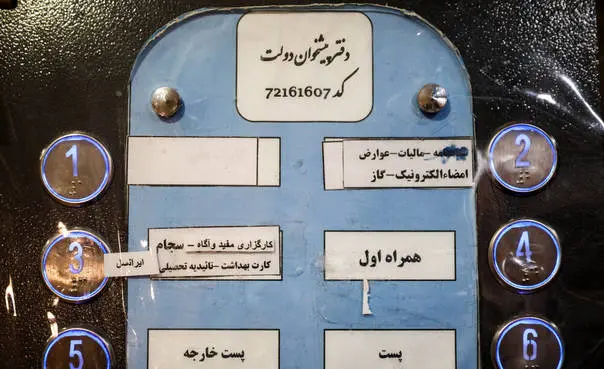 دفتر پیشخوان دولت
کد 72161607
1
2
مالیات-عوارض
امضاءالکترونیک-گاز
3
ایرانسل
کارگزاری مفید وآگاه - سجام
کارت بهداشت-تائیدیه تحصیلی
4
همراه اول
5
پست خارجه
پست
6